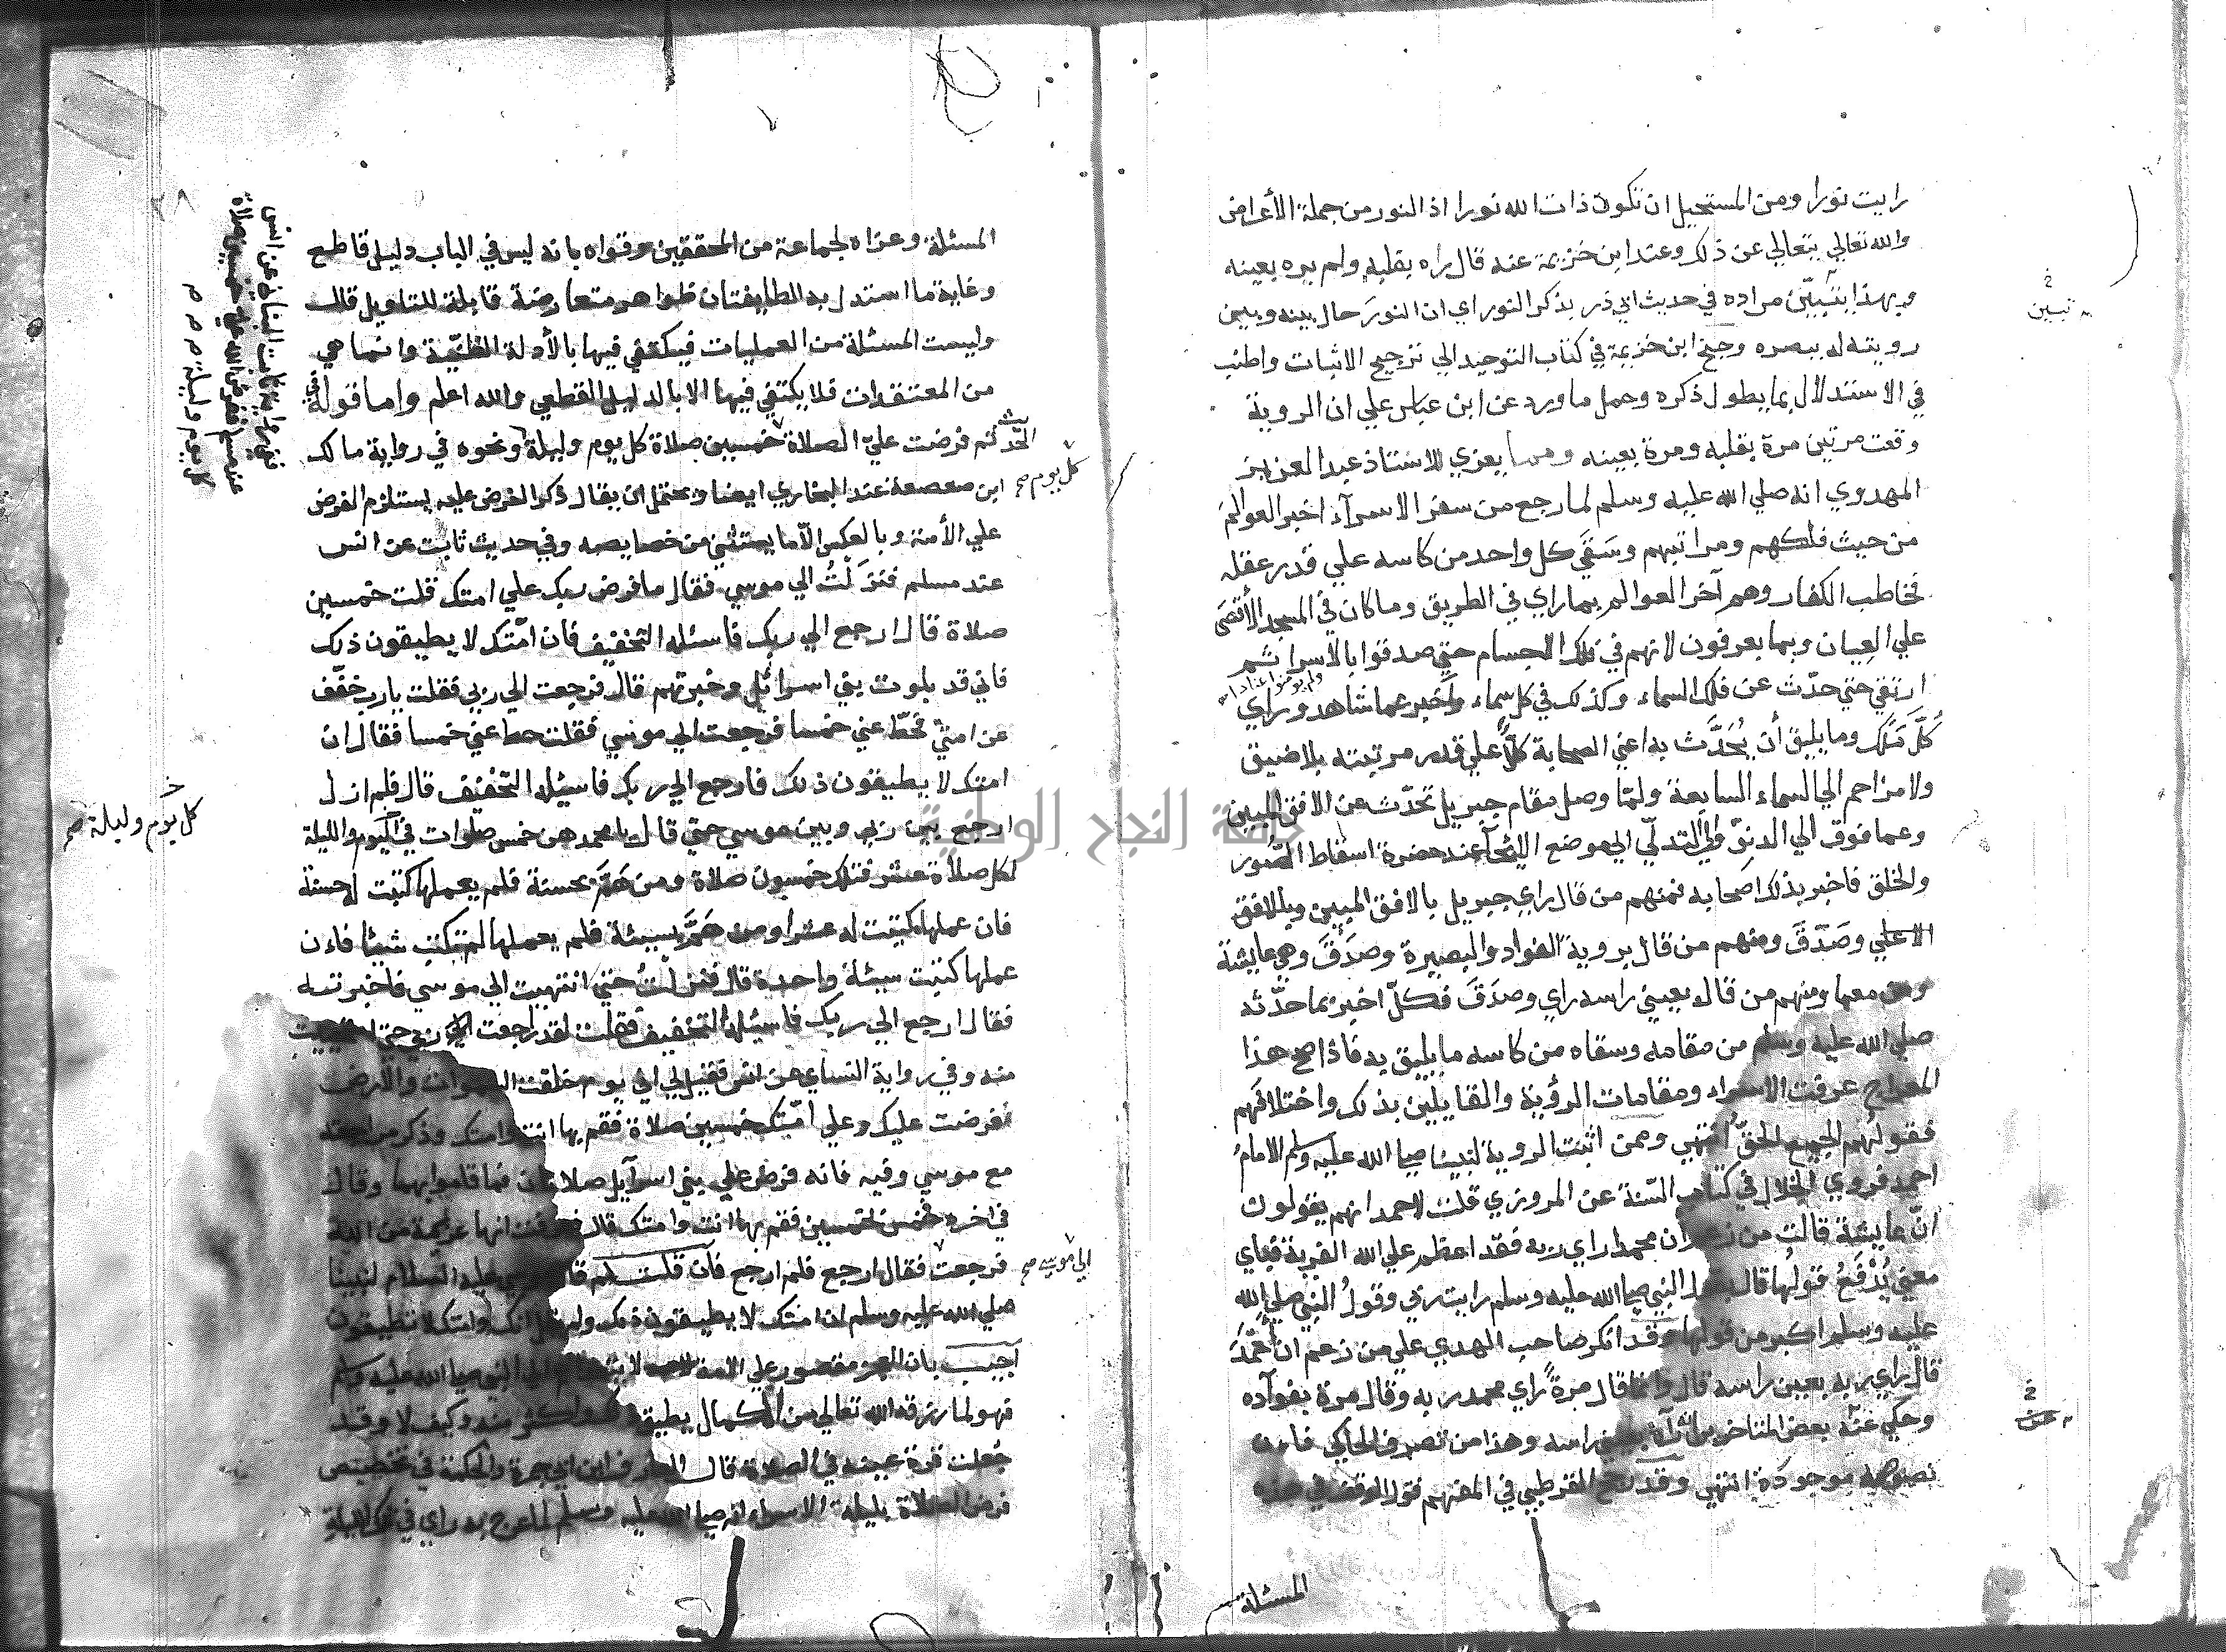 رايت نورا ومن المستحيل ان تكون ذات الله نورا اذ النور من جملة الأعراض
والله تعالي يتعالي عن ذلك وعند ابن خزيمة عنه قال راه بقلبه ولم يره بعينه
وبهذا يتبيّن مراده في حديث ابي ذر بذكر النور اي ان النورَ حال بينه وبين
رويته له ببصره وجنح ابن خزيمة في كتاب التوحيد الي ترجيح الاثبات واطنب
في الاستدلال بما يطول ذكره وحمل ما ورد عن ابن عباس علي ان الروية
وقعت مرتين مرة بقلبه ومرة بعينه ومما يعزي للاستاذ عبد العزيز
المهدوي انه صلي الله عليه وسلم لما رجع من سفر الاسرآء اخبر العوالمَ
من حيث فلكهم ومراتبهم وسَقَي كل واحد من كاسه علي قدر عقله
فخاطب الكفار وهم آخر العوالم بما راي في الطريق وما كان في المسجد الأقصَي
علي العِيان وبما يعرفون لانهم في فلك الاجسام حتي صدقوا بالاسرا ثم
ولم يومنوا عنادا
ارتقي حتي حدّث عن فلك السماء وكذلك في كل سماء واخبر عما شاهد وراي
كُلَّ فلك وما يليق أن يُحَدَّث به اعني الصحابة كلّاً علي قدر مرتبته بلا ضيق
ولا مزاحم الي السماء السابعة ولمّا وصل مقام جبريل تحدّث عن الافق المبين
وعما فوق الي الدنوّ والي التدلّي الي موضع عند حضرة اسقاط الصُّوَر
والخلق فاخبر بذلك اصحابه فمنهم من قال راي جبريل بالافق المبين وبالافق
الاعلي وصَدَقَ ومنهم من قال بروية الفواد والبصيرة وصدَقَ وهي عايشة
ومن معها ومنهم من قال بعيني راسه راي وصدَقَ فكلّ اخبر بما حدّثه
صلي الله عليه وسلم من مقامه وسقاه من كاسه ما يليق به فاذا صح هذا
المعراج عرفت الاسراء ومقامات الرؤية والقايلين بذلك واختلافهم
فقولهم الجميع الحقّ انتهي وممن اثبت الروية لنبينا صلي الله عليه وسلم الامامُ
احمد فروي الخلال في كتاب السّنة عن المروزي قلت لاحمد انهم يقولون
انّ عايشة قالت من زعم ان محمدا راي ربه فقد اعظم علي الله الفرية فباي
معني يُدْفَعُ قولُها قال بقول النبي صلي الله عليه وسلم رايت ربي وقولُ النبي صلي الله
عليه وسلم اكبر من قولها وقد انكر صاحب الهدي علي من زعم ان أحمَدَ
قال راي ربه بعين راسه قال وانما قال مرةً راي محمد ربه وقال مرة بفواده
وحكي عنه بعض المتاخرين انه رآه بعيني راسه وهذا من تصرف الحاكي فان
نصوصه موجودة انتهي وقد رجح القرطبي في المفهم قول الوقف في هذه
المسئلة
تبين
المسئلة وعزاه لجماعة من المحققين وقواه بانه ليس في الباب دليل قاطع
وغاية ما استدل به الطايفتان ظواهر متعارضة قابلة للتاويل قال
وليست المسئلة من العمليات فيكتفي فيها بالأدلة الظنّيّة وانما هي
من المعتقدات فلا يكتفي فيها الا بالدليل القطعي والله اعلم واما قوله في
الحديث ثم فرضت عليّ الصلاة خمسين صلاة كل يوم وليلة ونحوه في رواية مالك
كل يوم صح
ابن صعصعة عند البخاري ايضا ويحتمل ان يقال ذكر الفرض عليه يستلزم الفرض
علي الأمة وبالعكس الّا ما يستثني من خصايصه وفي حديث ثابت عن انس
عند مسلم فنزَلْتُ الي موسي فقال ما فرض ربك علي امتك قلت خمسين
صلاة قال ارجع الي ربك فاسئله التخفيف فان امّتك لا يطيقون ذلك
فاني قد بلوت بني اسرائيل وخبرتهم قال فرجعت الي ربي فقلت يا رب خفّف
عن امتي فحطّ عني خمسا فرجعت الي موسي فقلت حط عني خمسا فقال ان
امتك لا يطيقون ذلك فارجع الي ربك فاسئله التّخفيف قال فلم ازل
ارجع بين ربي وبين موسي حتي قال يا محمد هن خمس صلوات في اليوم والليلة
كل يوم وليلة صح
لكل صلاة عشر فتلك خمسون صلاة ومن هَمَّ بحسنة فلم يعملها كتبت له حسنة
فان عملها كتبت له عشرا ومن هَمَّ بسيئة فلم يعملها لم تكتب شيئا فان
عملها كتبت سيئة واحدة قال فنزلْتُ حتي انتهيت الي موسي فاخبرته
فقال ارجع الي ربك فاسئله التخفيف فقلت لقد راجعت ربي حتي استحييت
منه وفي رواية النساي عن انس فقيل لي اني يوم خلقت السموات والارض
فرضت عليك وعلي امّتك خمسين صلاة فقم بها انت وامتك وذكر مراجعته
مع موسي وفيه فانه فرض علي بني اسرآيل صلاتان فما قاموا بهما وقال
في اخره فخمس بخمسين فقم بها انت وامتك قال فعرفت انها عزيمة من الله
فرجعت فقال ارجع فلم ارجع فان قلت لم قال موسي عليه السلام لنبينا
الي موسي صح
صلي الله عليه وسلم ان امتك لا يطيقون ذلك ولم يقل انك وامتك لا تطيقون
اجيب بان العجز مقصور علي الامة لا يتعداهم الي النبي صلي الله عليه وسلم
فهو لما رزقه الله تعالي من الكمال يطيق ذلك واكثر منه وكيف لا وقد
جُعلت قرة عينه في الصلاة قال العارف ابن ابي جمرة والحكمة في تخصيص
فرض الصلاة بليلة الاسراء انه صلي الله عليه وسلم لما عرج به راي في تلك الليلة